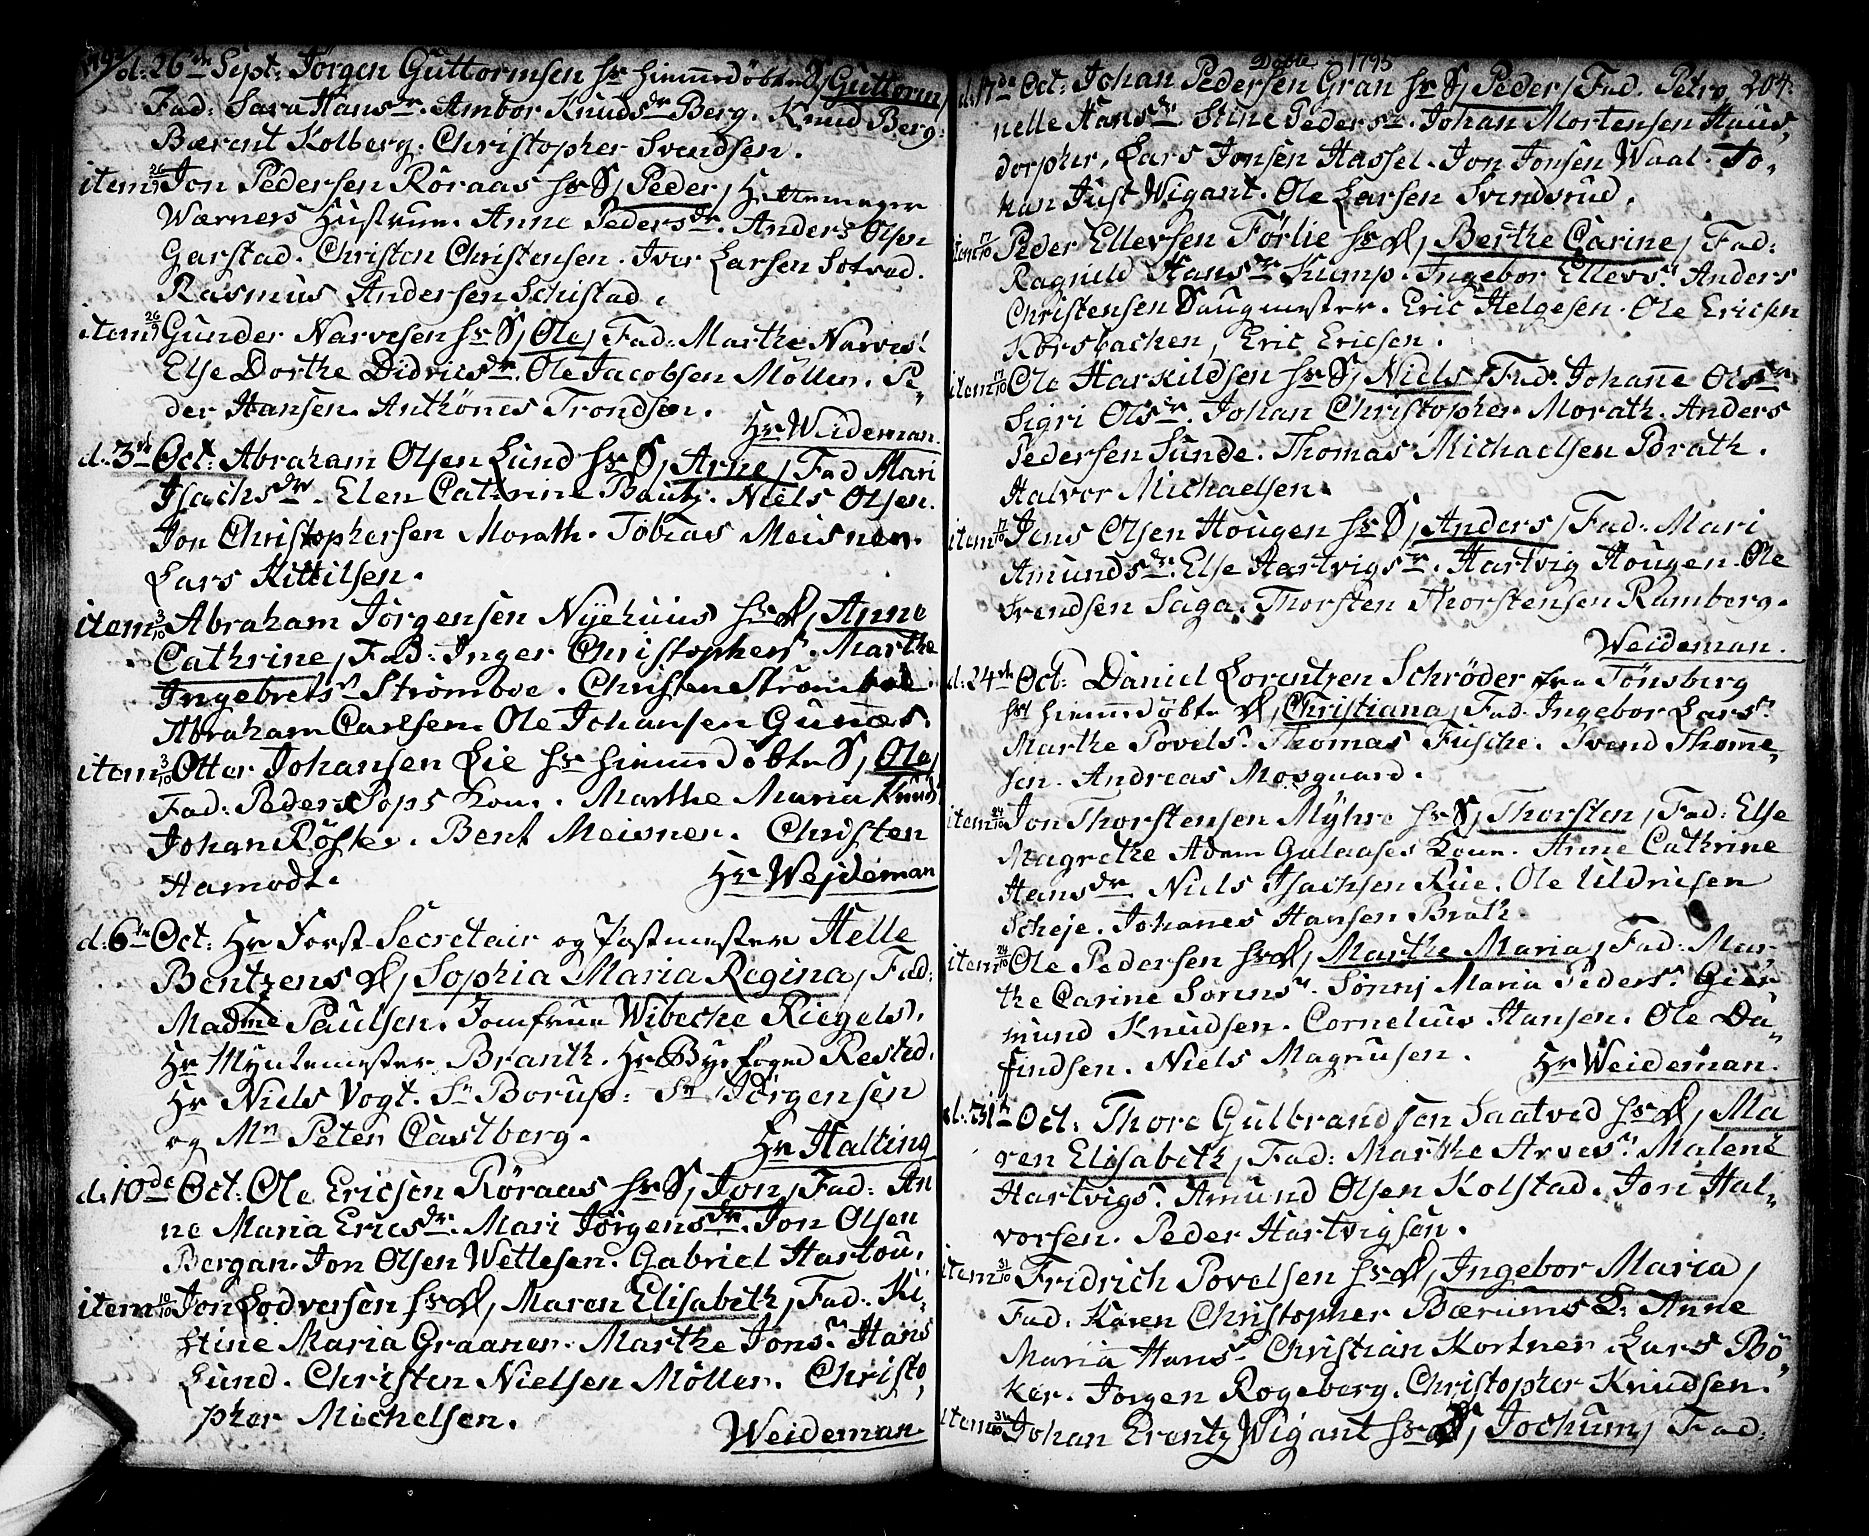 d. 26de Sept: Jörgen Guttormsen hs hiemmedöbte S, Guttorm,
Fad: Sara Hansdr. Ambor Knudsdr Berg. Knud Berg.
Bærent Kolberg. Christopher Svendsen.
item 26/9 Jon Pedersen Röraas hs S, Peder, Hyttemager
Wærners Hustrue. Anne Pedersdr. Anders Olsen
Garstad. Christen Christensen. Iver Larsen Sotvad.
Rasmus Andersen Schistad.
item 26/9 Gunder Narvesen hs S, Ole, Fad: Marthe Narves.
Else Dorthe Didricsdr. Ole Jacobsen Möller. Pe,
der Hansen. Anthönnes Trondsen.
Hr Weideman.
d. 3de Oct: Abraham Olsen Lund hs S, Arne, Fad Mari
Isachsdr. Elen Cathrine Bautz. Niels Olsen.
Jon Christophersen Morath. Tobias Meisner.
Lars Kittilsen.
item 3/10 Abraham Jörgensen Nyehuus hs d, Anne
Cathrine, Fad: Inger Christophers. Marthe
Ingebretsr Strømboe. Christen Strømboe.
Abraham Carlsen. Ole Johansen Gunæs.
item 3/10 Otter Johansen Lie hs hiemmedöbte S, Ole,
Fad: Peder Pops Kone. Marthe Maria Knuds
Johan Röste. Bent Meisner. Christen
Hamodt.
Hr Wejdeman
d. 6te Oct: Hr Forst-Secretair og Postmester Helle
Bentzens d, Sophia Maria Regina, Fad:
Madme Paulsen. Jomfrue Wibeche Riegels.
Hr Myntemester Branth. Hr Byefoged Rested.
Hr Niels Vogt. Sr Borup: Sr Jörgensen
og Mr Peter Castberg.
Hr Halting
d. 10de Oct: Ole Ericsen Röraas hs S, Jon, Fad: An
ne Maria Ericsdr. Mari Jörgensdr. Jon Olsen
Bergan. Jon Olsen Wetlesen. Gabriel Hartou.
item 10/10 Jon Lodversen hs d, Maren Elisabeth, Fad: Ki,
stine Maria Graaner. Marthe Jonsr. Hans
Lund. Christen Nielsen Möller. Christo,
pher Michelsen.
Weideman
Döbte 1795
204.
d. 17de Oct: Johan Pedersen Gran hs S, Peder, Fad. Petro,
nelle Hansdr Stine Pedersr. Johan Mortensen Haus,
dorpher, Lars Jonsen Hassel. Jon Jonsen Waal. Jo,
han Just Wigant. Ole Larsen Svindsrud.
item 17/10 Peder Ellevsen Förlie hs d, Berthe Carine, Fad:
Ragnild Hansdr Kump. Ingebor Ellevsr. Anders
Christensen Saugmester. Eric Helgesen. Ole Ericsen
Korsbachen, Eric Ericsen.
item 17/10 Ole Harkildsen hs S, Niels, Fad: Johanne Olsdr.
Sigri Olsdr. Johan Christopher Morath. Anders
Pedersen Sunde. Thomas Michaelsen Brath.
Halvor Michaelsen.
item 17/10 Jens Olsen Hougen hs S, Anders, Fad: Mari
Amundsdr. Else Hartvigsr. Hartvig Hougen. Ole
Svendsen Saga. Thorsten Thorstensen Ramberg.
Weideman.
d. 24de Oct: Daniel Lorentzen Schröder fra Tönsberg
hs hiemmedöbte d, Christiana, Fad. Ingebor Larsr.
Marthe Povelsr. Thomas Fusche. Svend Thomme,
sen. Andreas Mosgaard.
item 24/10 Jon Thorstensen Myhre hs S, Thorsten, Fad: Else
Magrethe Adam Galaases Kone. Anne Cathrine
Hansdr Niels Isachsen Rue. Ole Uldricsen
Scheje. Johannes Hansen Brath.
item 24/10 Ole Pedersen hs d, Marthe Maria, Fad: Mar,
the Carine Sorensr. Sönnj Maria Pedersr. Gier
mund Knudsen. Cornelius Hansen. Ole Da,
findsen. Niels Magnusen.
Hr Weideman.
d. 31te Oct. Thore Gulbrandsen Saatved hs d, Ma
ren Elisabeth, Fad: Marthe Arvesr. Malene
Hartvigsr. Amund Olsen Kolstad. Jon Hal,
vorsen. Peder Hartvigsen.
item 31/10 Fridrich Povelsen hs d, Ingebor Maria,
Fad. Karen Christopher Bærums K: Anne
Maria Hansr. Christian Kortner. Lars Bö,
ker. Jorgen Rogeberg. Christopher Knudsen.
item 31/10 Johan Erentz Wigant hs S, Jochum, Fad: